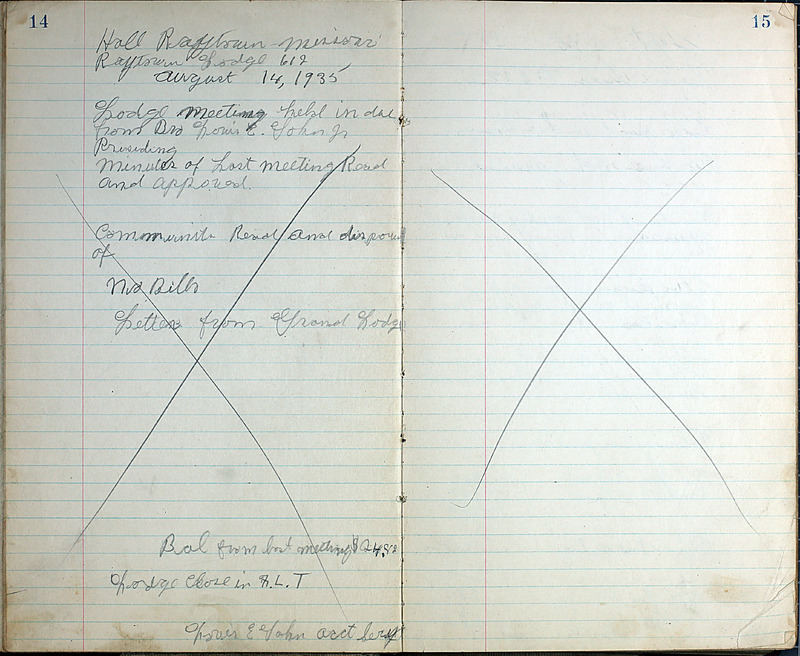 14
Hall Raytown Missouri
Raytown Lodge 612
August 14, 1935
Lodge meeting held in due
from Bro Louis E. John Jr
Presiding
Minutes of Last meeting Read
and approved.
Communits Read and disposed
of
No Bills
Letters from Grand Lodge
Bal from last meeting $24.82
Lodge Close in F.L.T
Louis E John acct
15